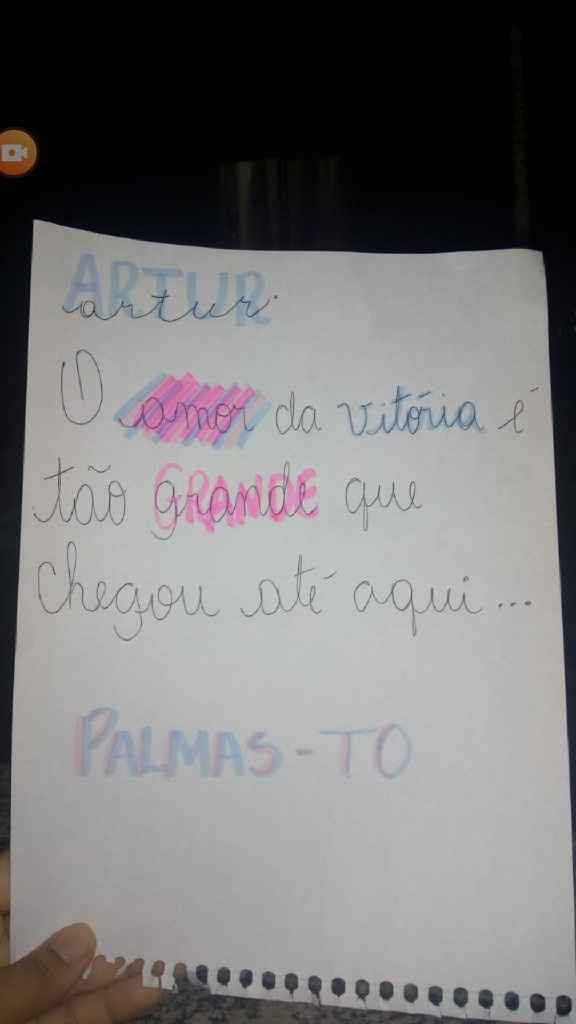 ARTUR
artur.
O amor da vitória é
tão grande GRANDE que
chegou até aqui...
PALMAS-TO